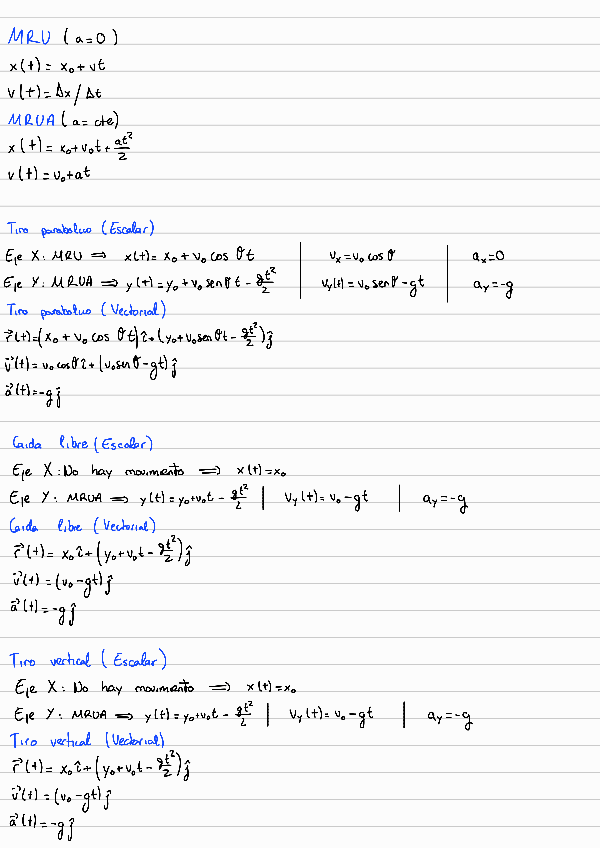 MRU (a=0)
x(t) = x₀ + vt
v(t) = Δx/Δt
MRUA (a = cte)
x(t) = x₀ + v₀t + at²/2
v(t) = v₀ + at
Tiro parabolico (Escalar)
Eje X: MRU ⟹ x(t) = x₀ + v₀ cos θ t | vₓ = v₀ cos θ | aₓ = 0
Eje Y: MRUA ⟹ y(t) = y₀ + v₀ sen θ t - gt²/2 | v_y(t) = v₀ sen θ - gt | a_y = -g
Tiro parabolico (Vectorial)
r⃗(t) = (x₀ + v₀ cos θt) î + (y₀ + v₀ sen θt - gt²/2) ĵ
v⃗(t) = v₀ cos θ î + (v₀ sen θ - gt) ĵ
a⃗(t) = -g ĵ
Caida libre (Escalar)
Eje X: No hay movimiento ⟹ x(t) = x₀
Eje Y: MRUA ⟹ y(t) = y₀ + v₀t - gt²/2 | v_y(t) = v₀ - gt | a_y = -g
Caida libre (Vectorial)
r⃗(t) = x₀ î + (y₀ + v₀t - gt²/2) ĵ
v⃗(t) = (v₀ - gt) ĵ
a⃗(t) = -g ĵ
Tiro vertical (Escalar)
Eje X: No hay movimiento ⟹ x(t) = x₀
Eje Y: MRUA ⟹ y(t) = y₀ + v₀t - gt²/2 | v_y(t) = v₀ - gt | a_y = -g
Tiro vertical (Vectorial)
r⃗(t) = x₀ î + (y₀ + v₀t - gt²/2) ĵ
v⃗(t) = (v₀ - gt) ĵ
a⃗(t) = -g ĵ